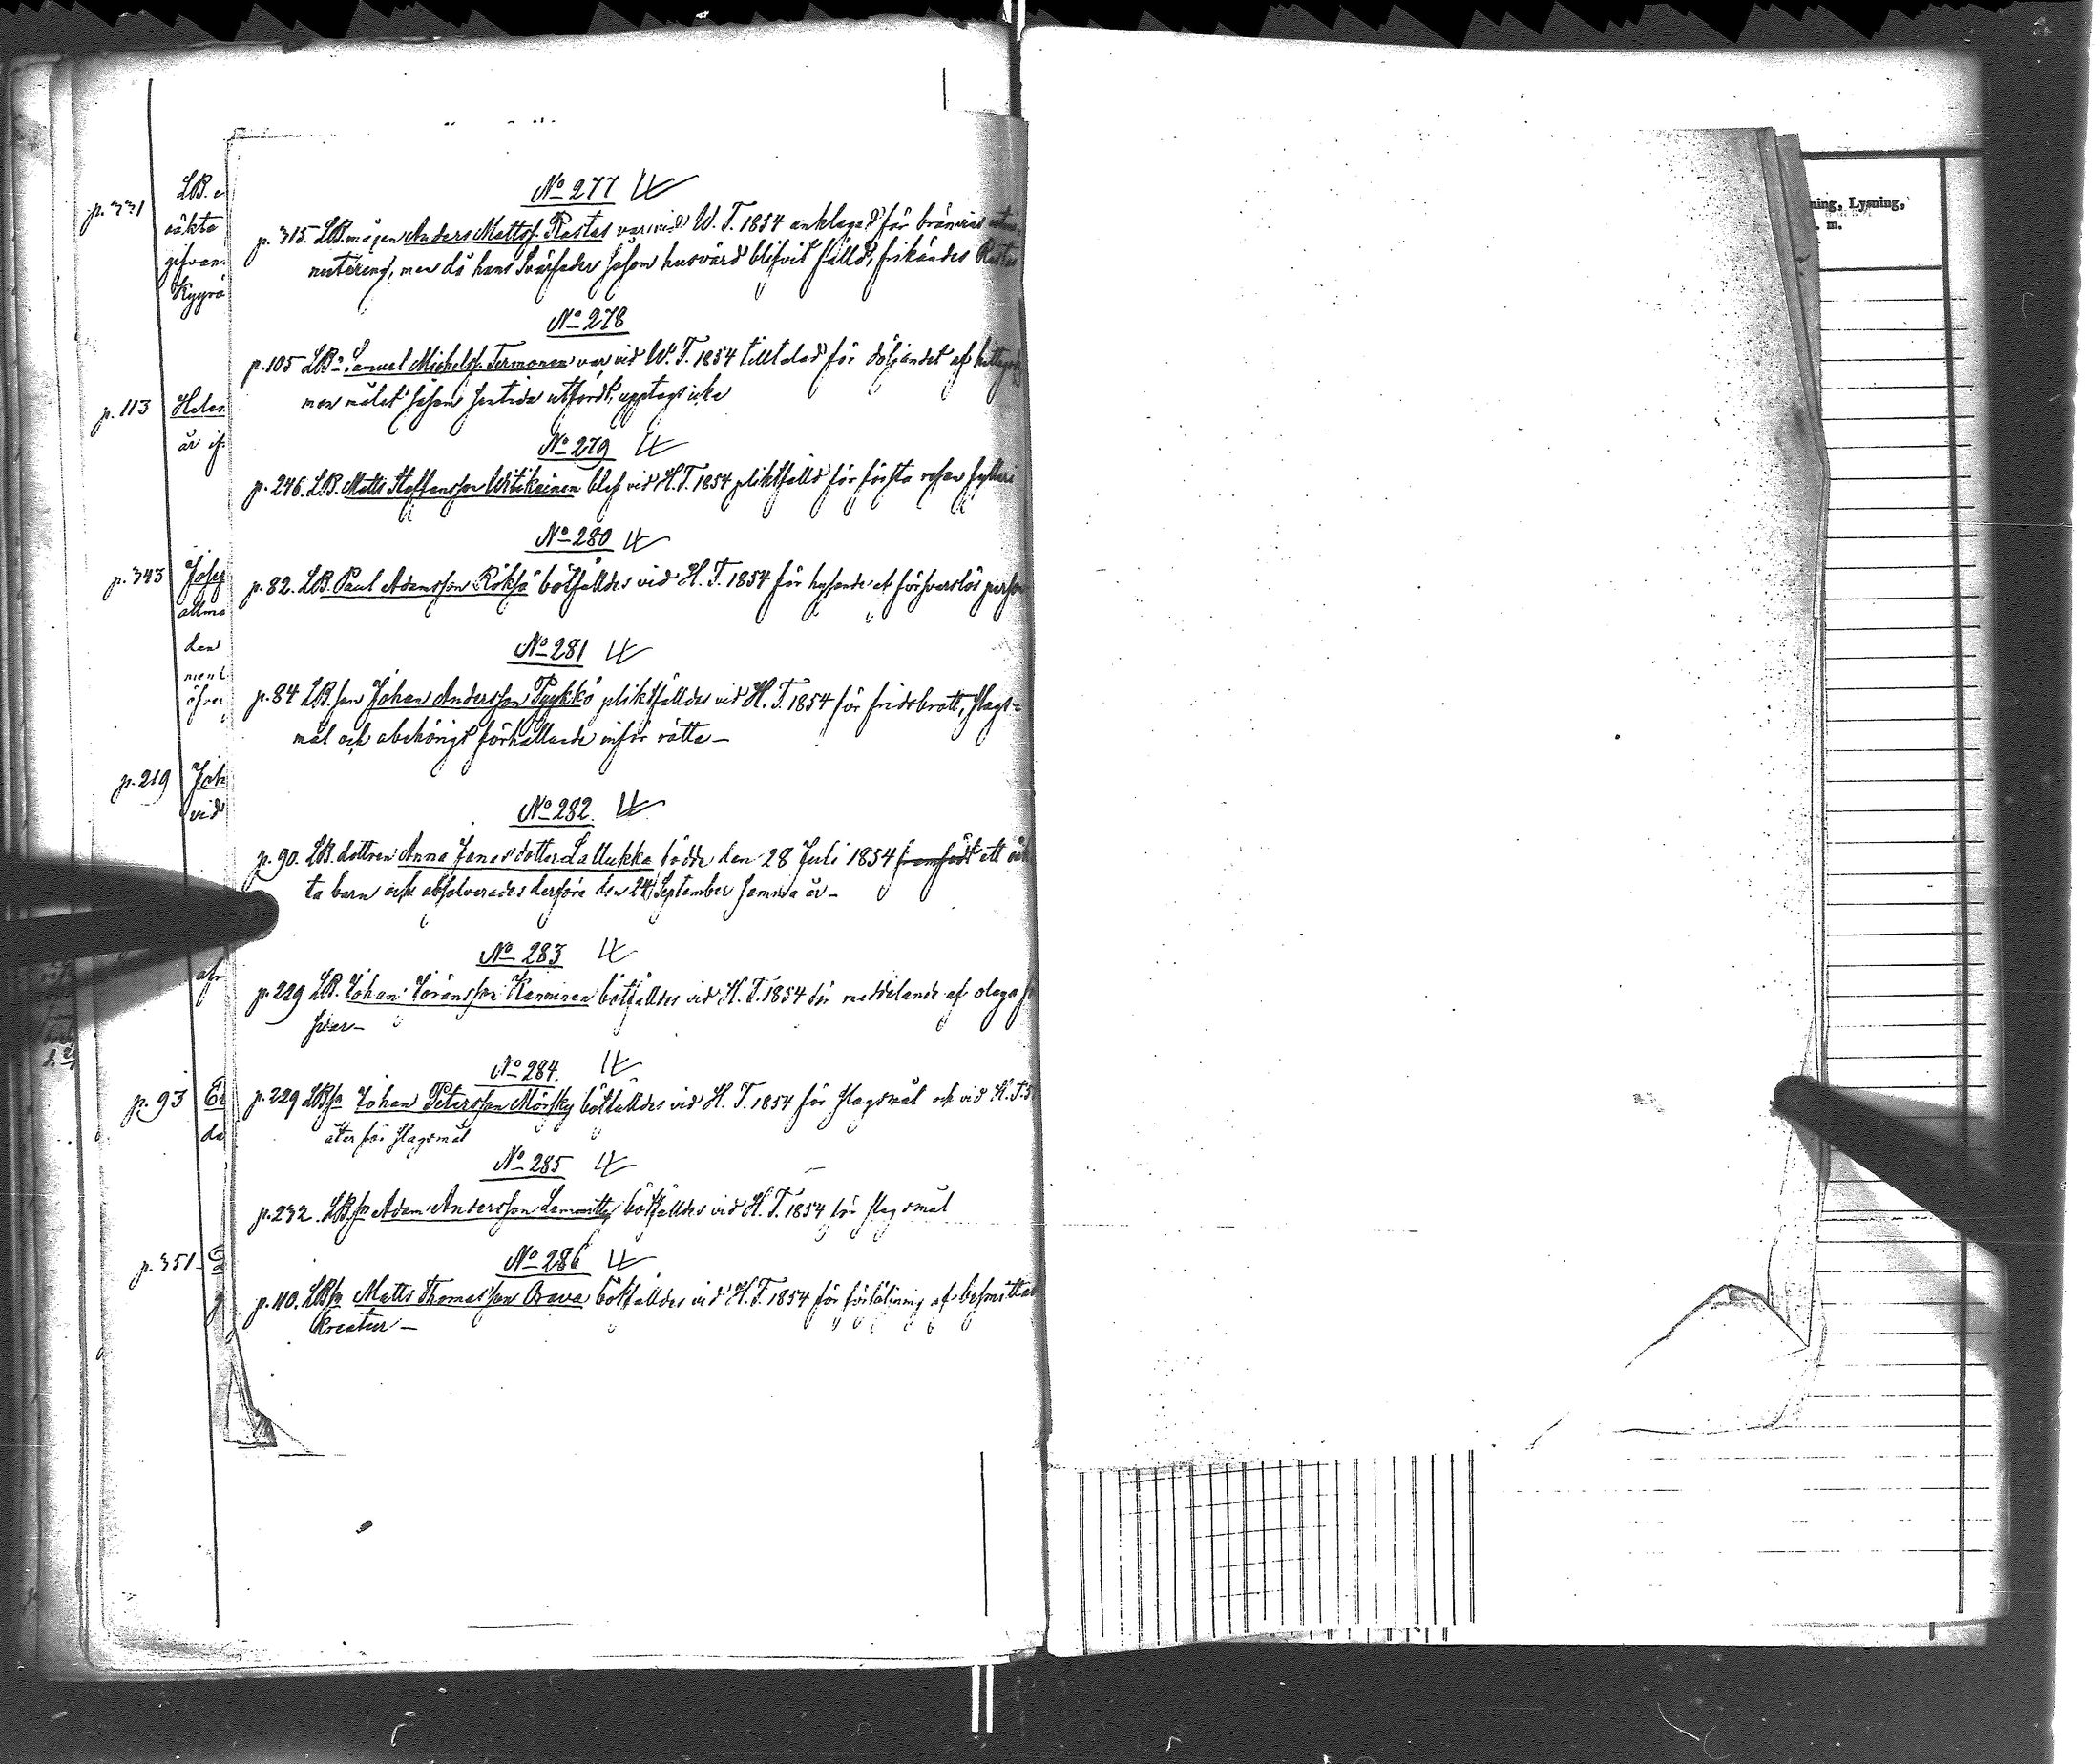 p. 331
LB.
oäkta
p. 113
Helen
är
p. 343
Josef
allmä
den
p. 219
Joh
vid
p. 93
da
p. 351
No 277
p. 315. LB. mågen Anders Mattss. Rastas var vid W. T. 1854 anklagad för bränvins
nutering, men då hans Svärfader såsom husvärd blifvit fälld, frikändes Rastas
No 278
p. 105 LBn Samuel Michelss. Termonen var vid W. T. 1854 tilltalad för döljandet af
men målet såsom utfördt, upptogs icke
No 279
p. 246. LB. Matts Staffansson Witikainen blef vid H. T. 1854 pliktfälld för första resan fylleri
No 280
p. 82. LB. Paul Adamsson Röksä bötfälldes vid H. T. 1854 för hysande af försvarslös person
No 281
p. 84 LB. son Johan Andersson Pyykkö pliktfälldes vid H. T. 1854 för fridsbrott, slags-
mål och obehörigt förhållande inför rätta —
No 282.
p. 90. LB. dottren Anna Jonasdotter Lallukka födde den 28 Juli 1854 framfödt ett oäk
ta barn och absolverades derföre den 24 September samma år —
No 283
p. 229 LB. Johan Göransson Kanninen bötfälldes vid H. T. 1854 för meddelande af olaga
svar —
No 284.
p. 229 LBsn Johan Petersson Mörsky bötfälldes vid H. T. 1854 för slagsmål och vid H. T.
åter för slagsmål
No 285
p. 232. LBsn Adam Andersson bötfälldes vid H. T. 1854 för slagsmål
No 286
p. 110. LBsn Matts Thomasson Orava bötfälldes vid H. T. 1854 för af besmittad
kreatur —
ning, Lysning,
m.